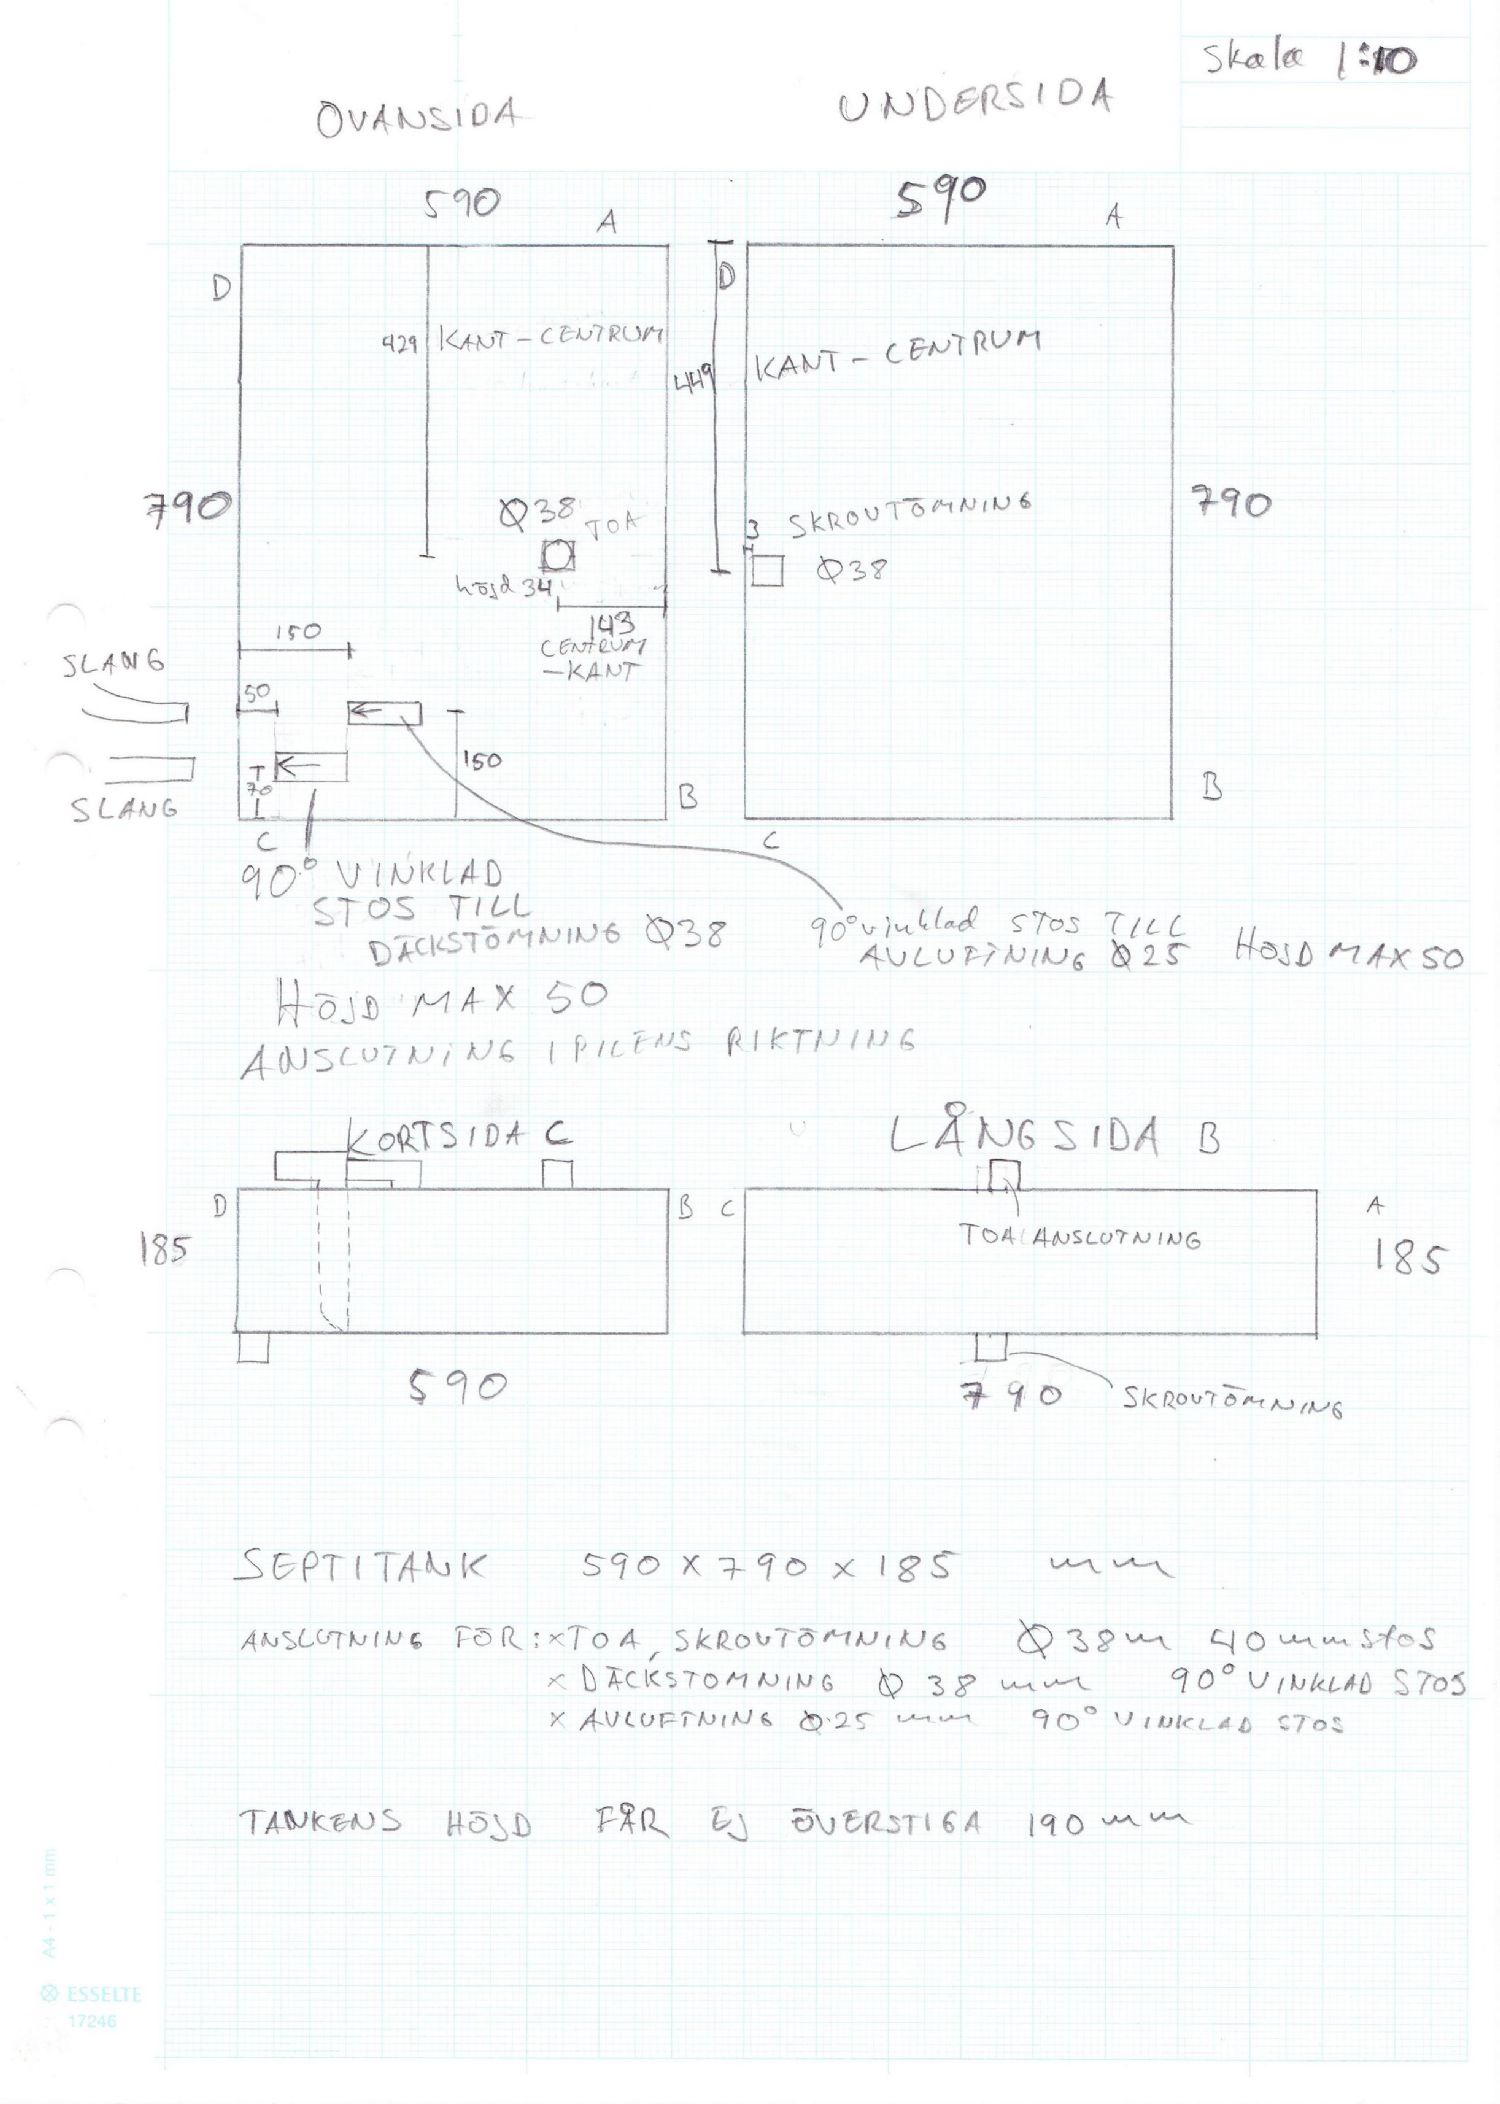 Skala 1:10
OVANSIDA
UNDERSIDA
590
A
590
A
D
D
429
KANT-CENTRUM
449
KANT-CENTRUM
790
Ø38
TOA
höjd 34
3
SKROVTÖMNING
Ø38
790
143
CENTRUM
-KANT
150
SLANG
50
150
70
SLANG
B
B
C
C
90° VINKLAD
STOS TILL
DÄCKSTÖMNING Ø38
90° vinklad STOS TILL
AVLUFTNING Ø25 HÖJD MAX 50
HÖJD MAX 50
ANSLUTNING I PILENS RIKTNING
KORTSIDA C
LÅNGSIDA B
D
B
C
A
185
TOA ANSLUTNING
185
590
790
SKROVTÖMNING
SEPTITANK 590 x 790 x 185 mm
ANSLUTNING FÖR: x TOA, SKROVTÖMNING Ø 38m 40 mm stos
x DÄCKSTÖMNING Ø 38 mm 90° VINKLAD STOS
x AVLUFTNING Ø 25 mm 90° VINKLAD STOS
TANKENS HÖJD FÅR EJ ÖVERSTIGA 190 mm
A4 - 1 x 1 mm
ESSELTE
17246